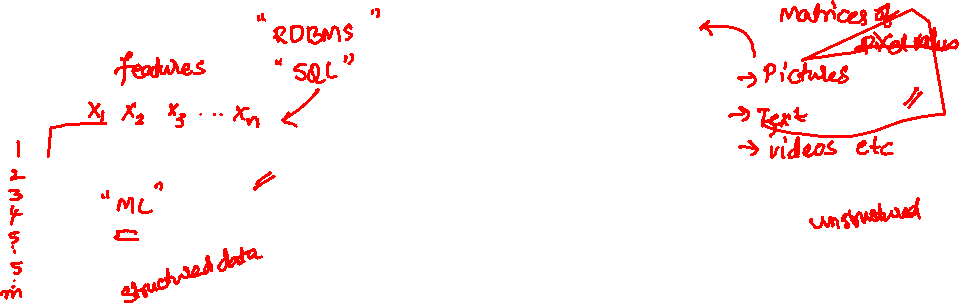 "RDBMS"
"SQL"
features
X1 X2 X3 ... Xn
1
2
3
4
5
:
5
:
m
"ML"
structured data
Matrices of
pixel values
→ Pictures
→ Text
→ videos etc